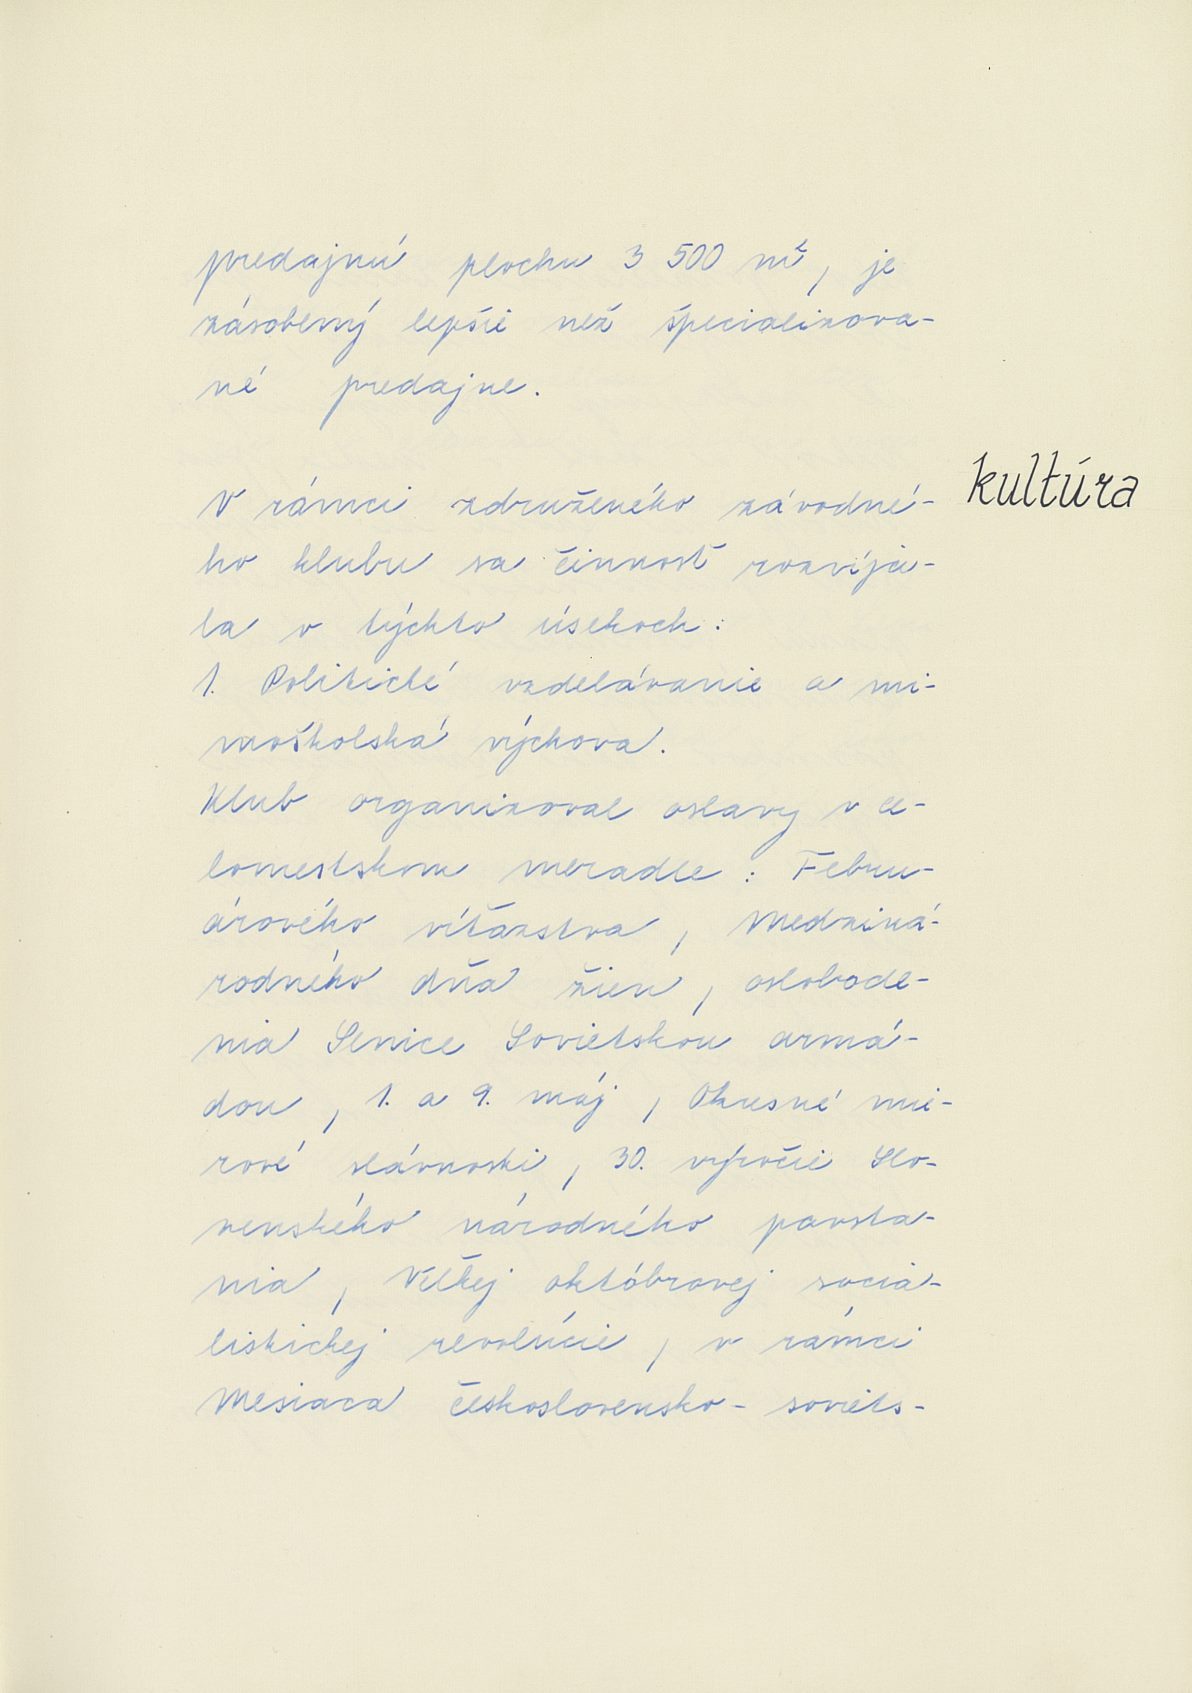 predajnú plochu 3 500 m², je
zásobený lepšie než špecializova-
né predajne.
kultúra
V rámci združeného závodné-
ho klubu sa činnosť rozvíja-
la v týchto úsekoch:
1. Politické vzdelávanie a mi-
moškolská výchova.
Klub organizoval oslavy v ce-
lomestskom meradle: Febru-
árového víťazstva, Medziná-
rodného dňa žien, oslobode-
nia Senice Sovietskou armá-
dou, 1. a 9. máj, Okresné mie-
rové slávnosti, 30. výročie Slo-
venského národného povsta-
nia, Veľkej októbrovej sociá-
listickej revolúcie, v rámci
Mesiaca československo-soviets-